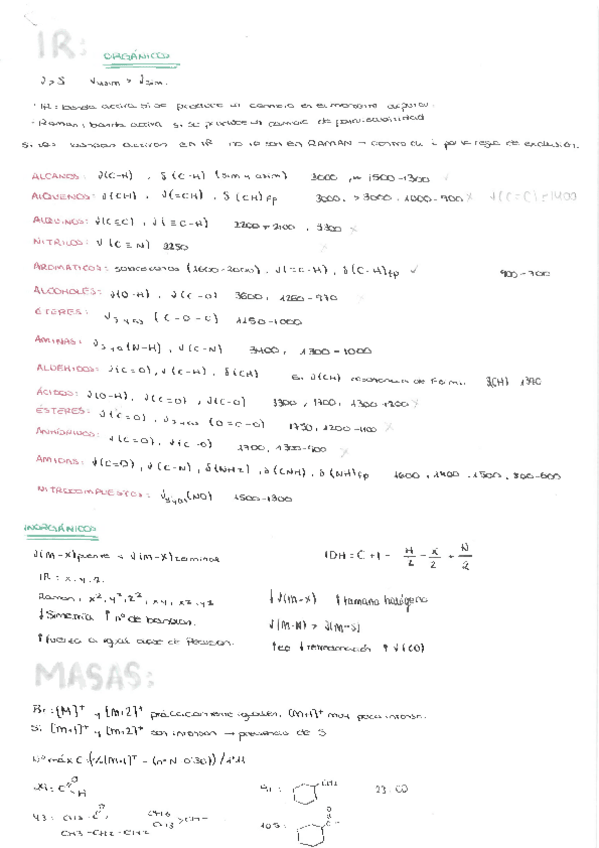 IR: ORGÁNICOS
ν > δ νasim > νsim.
· IR: banda activa si se produce un cambio en el momento dipolar.
· Raman: banda activa si se produce un cambio de polarizabilidad
Si las bandas activas en IR no lo son en RAMAN → centro de i por la regla de exclusión.
ALCANOS: ν(C-H), δ(C-H) (sim y asim) 3000, 1500-1300
ALQUENOS: ν(CH), ν(=CH), δ(CH)fp 3000, >3000, 1000-900 x ν(C=C)=1400
ALQUINOS: ν(C≡C), ν(≡C-H) 2200+2100, 3300 x
NITRILOS: ν(C≡N) 2250
AROMATICOS: (1600-2000), ν(=C-H), δ(C-H)fp 900-700
ALCOHOLES: ν(O-H), ν(C-O) 3600, 1260-970
ÉTERES: (C-O-C) 1150-1000
AMINAS: (N-H), ν(C-N) 3400, 1300-1000
ALDEHIDOS: ν(C=O), ν(C-H), δ(CH) En ν(CH) resonancia de Fermi. δ(CH) 1390
ÁCIDOS: ν(O-H), ν(C=O), ν(C-O) 3300, 1700, 1300+1200 x
ÉSTERES: ν(C=O), (O=C-O) 1750, 1200-1100 x
ANHÍDRIDOS: ν(C=O), ν(C-O) 1700, 1300-900 x
AMIDAS: ν(C=O), ν(C-N), δ(NH2), δ(CNH), δ(NH)fp 1600, 1400, 1500, 800-600
NITROCOMPUESTOS: (NO) 1500-1300
INORGÁNICOS
ν(M-X)puente < ν(M-X)terminal IDH = C+1- H/2 - X/2 + N/2
IR: x, y, z.
Raman: x², y², z², xy, xz, yz ↓ν(M-X) ↑tamaño halógeno
↓Simetría ↑nº de bandas. ν(M-N) > ν(M-S)
↑fuerza a igual clase de Pearson. ↑ν(CO)
MASAS:
Br: [M]⁺ y [M+2]⁺ prácticamente iguales, [M+1]⁺ muy poco intenso.
Si [M+1]⁺ y [M+2]⁺ son intensos → presencia de S
Nº máx C = (%[M+1]⁺ - (nº N 0'36))/1'11
O H 91: CH2
43: CH3-C O CH3-CH2-CH2 CH3 CH3 >CH- 105: O C